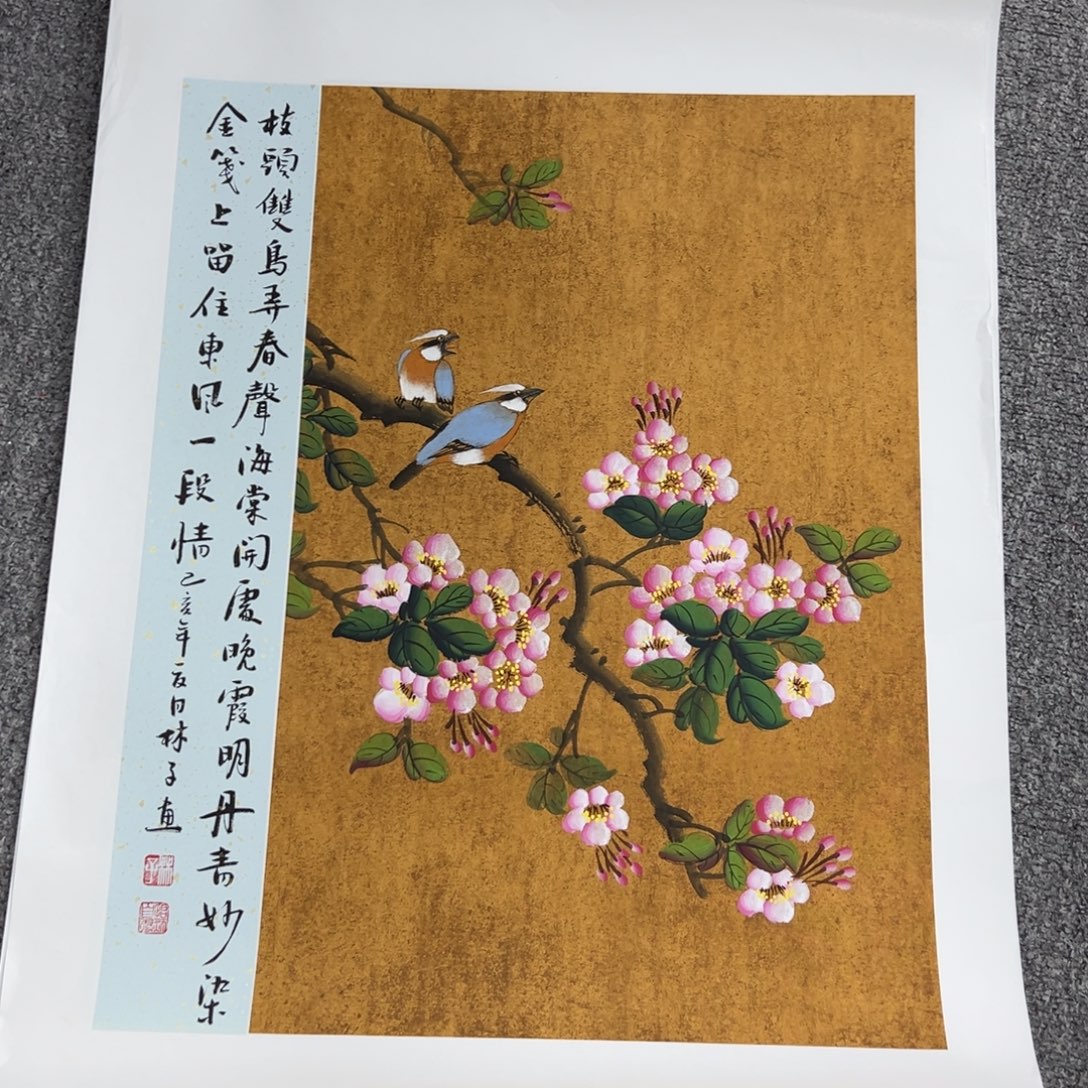 枝頭雙鳥弄春聲海棠開處晚霞明丹青妙染
金箋上留住東風一段情己亥年夏日林子画